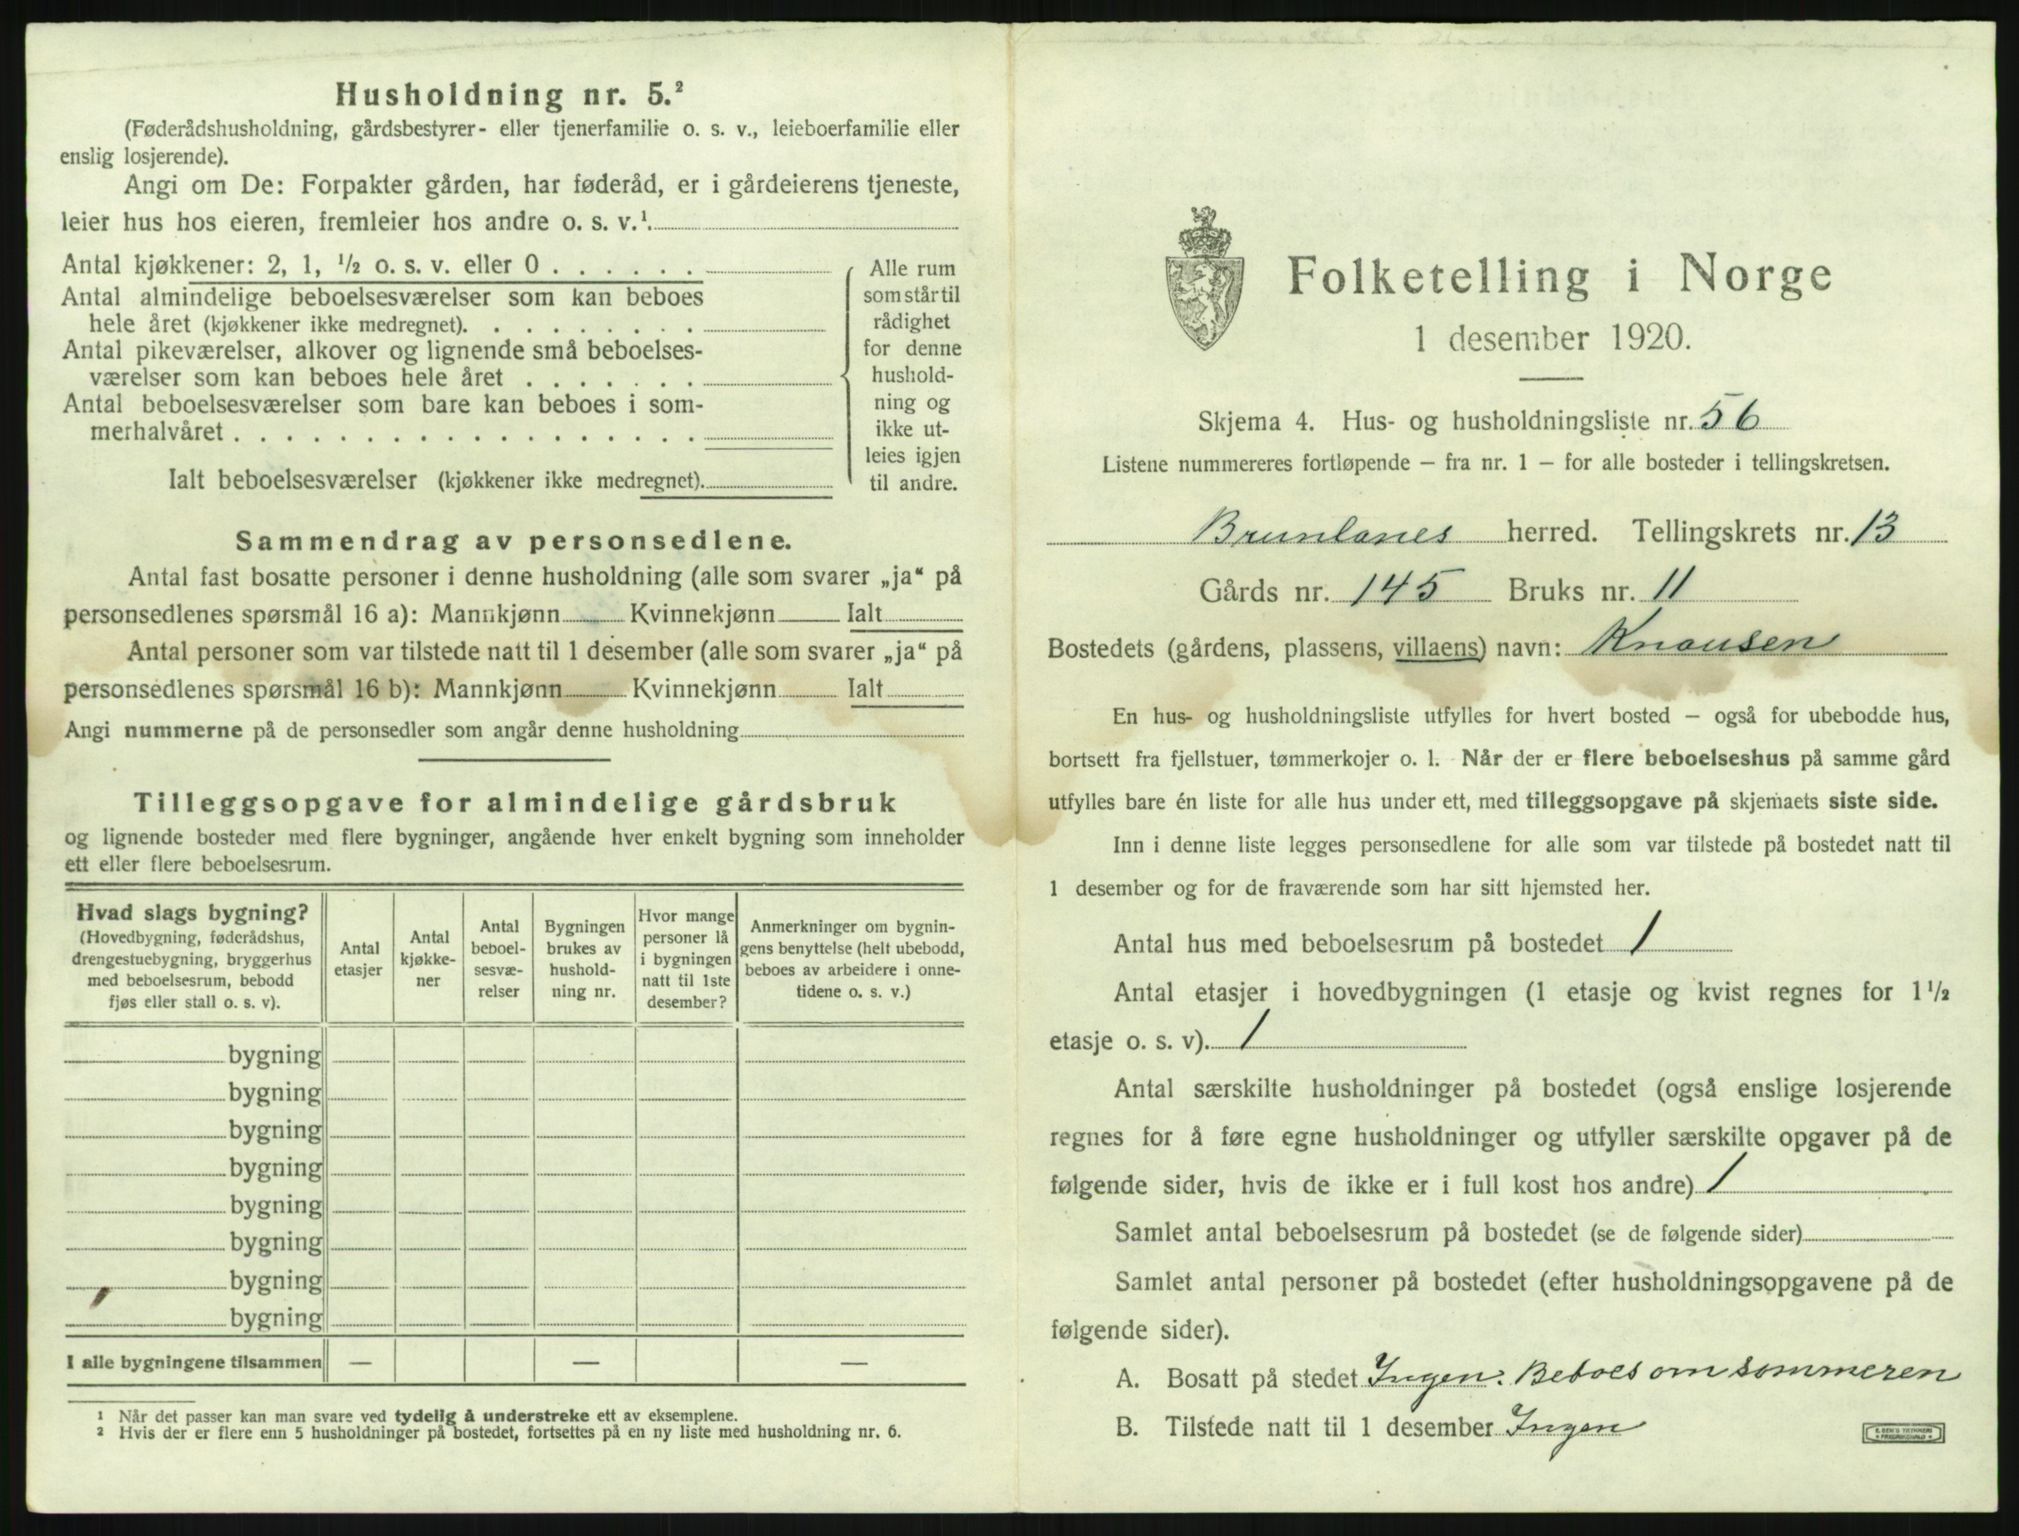 Husholdning nr. 5.²
(Føderådshusholdning, gårdsbestyrer- eller tjenerfamilie o. s. v., leieboerfamilie eller
enslig losjerende).
Angi om De: Forpakter gården, har føderåd, er i gårdeierens tjeneste,
leier hus hos eieren, fremleier hos andre o. s. v.¹
Antal kjøkkener: 2, 1, ½ o. s. v. eller 0 . . . . . .
Antal almindelige beboelsesværelser som kan beboes
hele året (kjøkkener ikke medregnet). . . . . . . . .
Antal pikeværelser, alkover og lignende små beboelses-
værelser som kan beboes hele året . . . . . . .
Antal beboelsesværelser som bare kan beboes i som-
merhalvåret . . . . . . . . . . . . . . . . . .
Ialt beboelsesværelser (kjøkkener ikke medregnet).
Alle rum
som står til
rådighet
for denne
hushold-
ning og
ikke ut-
leies igjen
til andre.
Sammendrag av personsedlene.
Antal fast bosatte personer i denne husholdning (alle som svarer „ja“ på
personsedlenes spørsmål 16 a): Mannkjønn Kvinnekjønn Ialt
Antal personer som var tilstede natt til 1 desember (alle som svarer „ja“ på
personsedlenes spørsmål 16 b): Mannkjønn Kvinnekjønn Ialt
Angi nummerne på de personsedler som angår denne husholdning
Tilleggsopgave for almindelige gårdsbruk
og lignende bosteder med flere bygninger, angående hver enkelt bygning som inneholder
ett eller flere beboelsesrum.
Hvad slags bygning?
(Hovedbygning, føderådshus,
drengestuebygning, bryggerhus
med beboelsesrum, bebodd
fjøs eller stall o. s. v).
Antal
etasjer
Antal
kjøkke-
ner
Antal
beboel-
sesvæ-
relser
Bygningen
brukes av
hushold-
ning nr.
Hvor mange
personer lå
i bygningen
natt til 1ste
desember?
Anmerkninger om bygnin-
gens benyttelse (helt ubebodd,
beboes av arbeidere i onne-
tidene o. s. v.)
bygning
bygning
bygning
bygning
bygning
bygning
bygning
bygning
I alle bygningene tilsammen — — —
¹ Når det passer kan man svare ved tydelig å understreke ett av eksemplene.
² Hvis der er flere enn 5 husholdninger på bostedet, fortsettes på en ny liste med husholdning nr. 6.
Folketelling i Norge
1 desember 1920.
Skjema 4. Hus- og husholdningsliste nr. 56
Listene nummereres fortløpende – fra nr. 1 – for alle bosteder i tellingskretsen.
Brunlanes herred. Tellingskrets nr. 13
Gårds nr. 145 Bruks nr. 11
Bostedets (gårdens, plassens, villaens) navn: Knausen
En hus- og husholdningsliste utfylles for hvert bosted – også for ubebodde hus,
bortsett fra fjellstuer, tømmerkojer o. l. Når der er flere beboelseshus på samme gård
utfylles bare én liste for alle hus under ett, med tilleggsopgave på skjemaets siste side.
Inn i denne liste legges personsedlene for alle som var tilstede på bostedet natt til
1 desember og for de fraværende som har sitt hjemsted her.
Antal hus med beboelsesrum på bostedet 1
Antal etasjer i hovedbygningen (1 etasje og kvist regnes for 1½
etasje o. s. v). 1
Antal særskilte husholdninger på bostedet (også enslige losjerende
regnes for å føre egne husholdninger og utfyller særskilte opgaver på de
følgende sider, hvis de ikke er i full kost hos andre) 1
Samlet antal beboelsesrum på bostedet (se de følgende sider)
Samlet antal personer på bostedet (efter husholdningsopgavene på de
følgende sider).
A. Bosatt på stedet Ingen. Beboes om sommeren
B. Tilstede natt til 1 desember Ingen